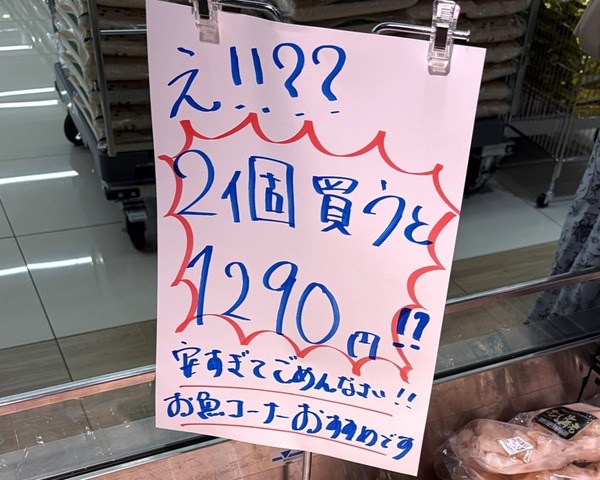 え!!??
2個買うと
1290円!?
安すぎてごめんなさい!!
お魚コーナーおすすめです